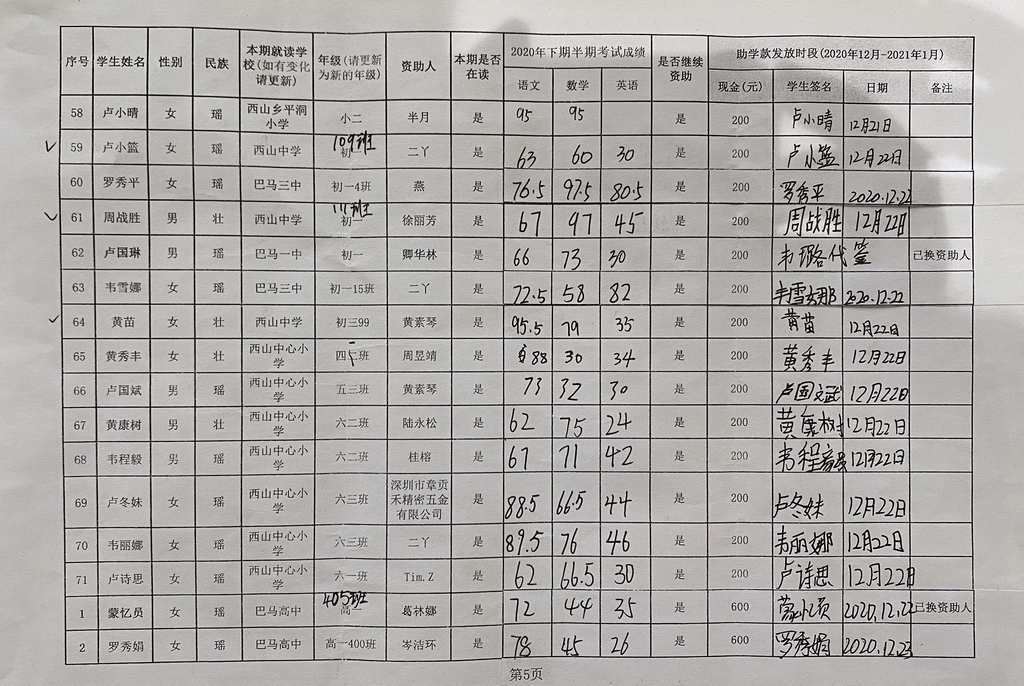 序号 学生姓名 性别 民族 本期就读学校(如有变化请更新) 年级(请更新为新的年级) 资助人 本期是否在读 2020年下期半期考试成绩 是否继续资助 助学款发放时段(2020年12月-2021年1月)
语文 数学 英语 现金(元) 学生签名 日期 备注
58 卢小晴 女 瑶 西山乡平洞小学 小二 半月 是 95 95 是 200 卢小晴 12月21日
59 卢小篮 女 瑶 西山中学 初一 109班 二丫 是 63 60 30 是 200 卢小篮 12月22日
60 罗秀平 女 瑶 巴马三中 初一4班 燕 是 76.5 97.5 80.5 是 200 罗秀平 2020.12.22
61 周战胜 男 壮 西山中学 初一 111班 徐丽芳 是 67 97 45 是 200 周战胜 12月22日
62 卢国琳 男 瑶 巴马一中 初一 卿华林 是 66 73 30 是 200 韦璐代签 已换资助人
63 韦雪娜 女 瑶 巴马三中 初一15班 二丫 是 72.5 58 82 是 200 韦雪娜 2020.12.22
64 黄苗 女 壮 西山中学 初三99 黄素琴 是 95.5 79 35 是 200 黄苗 12月22日
65 黄秀丰 女 壮 西山中心小学 四二班 周昱靖 是 88 30 34 是 200 黄秀丰 12月22日
66 卢国斌 男 瑶 西山中心小学 五三班 黄素琴 是 73 32 30 是 200 卢国斌 12月22日
67 黄康树 男 壮 西山中心小学 六二班 陆永松 是 62 75 24 是 200 黄康树 12月22日
68 韦程毅 男 瑶 西山中心小学 六二班 桂榕 是 67 71 42 是 200 韦程毅 12月22日
69 卢冬妹 女 瑶 西山中心小学 六三班 深圳市章贡禾精密五金有限公司 是 88.5 66.5 44 是 200 卢冬妹 12月22日
70 韦丽娜 女 瑶 西山中心小学 六三班 二丫 是 89.5 76 46 是 200 韦丽娜 12月22日
71 卢诗思 女 瑶 西山中心小学 六一班 Tim.Z 是 62 66.5 30 是 200 卢诗思 12月22日
1 蒙忆员 女 瑶 巴马高中 高一 405班 葛林娜 是 72 44 35 是 600 蒙忆员 2020.12.22 已换资助人
2 罗秀娟 女 瑶 巴马高中 高一400班 岑洁环 是 78 45 26 是 600 罗秀娟 2020.12.23
第5页